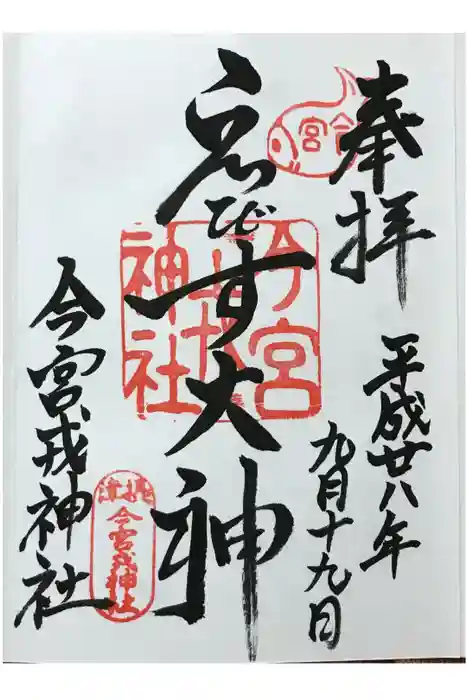 奉拝
平成廿八年
九月十九日
今宮
ゑびす大神
今宮戎神社
今宮戎神社
摂津
今宮戎神社